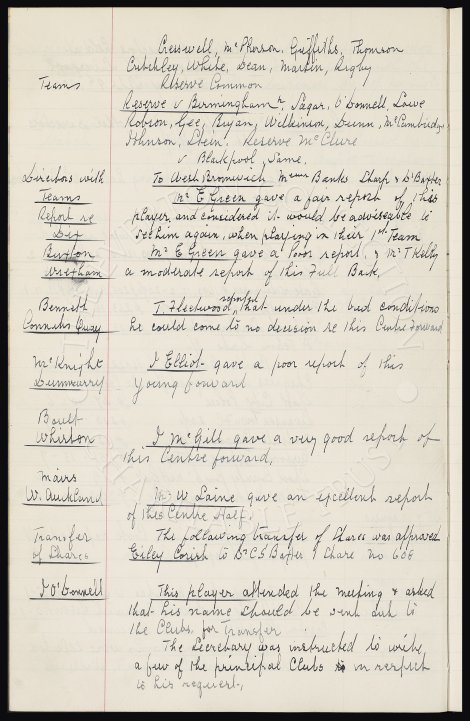 Cresswell, McPherson, Griffiths, Thomson
Critchley, White, Dean, Martin, Rigby
Teams
Reserve Common
Reserve v Birmingham r, Sagar, O'Donnell, Lowe
Robson, Gee, Bryan, Wilkinson, Dunn, McCambridge
Johnson, Stein. Reserve McClure
v Blackpool, Same.
Directors with
Teams
To West Bromwich Messrs Banks Sharp & Dr Baxter
Report re
Dix
Mr E Green gave a fair report of this
player, and considered it would be adviseable to
see him again, when playing in their 1st Team
Buxton
Wrexham
Mr E Green gave a Poor report, & Mr T Kelly
a moderate report of this Full Back.
Bennett
Connahs Quay
T. Fleetwood reported that under the bad conditions
he could come to no decision re this Centre Forward
McKnight
Dunmurry
J Elliot gave a poor report of this
Young forward
Boult
Wharton
J McGill gave a very good report of
this Centre forward,
Mairs
W. Auckland
Mr W Laine gave an excellent report
of this Centre Half.
Transfer
of Shares
The following transfer of shares was approved
Corish to Dr C S Baxter 1 share No 608
J O'Donnell
This player attended the meeting & asked
that his name should be sent out to
the Clubs for Transfer
The Secretary was instructed to write
a few of the principal Clubs in respect
to his request,